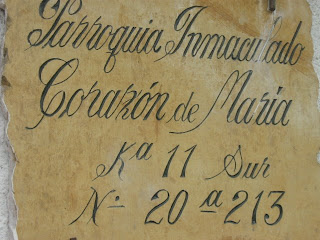 Parroquia Inmaculado
Corazón de Maria
Ka 11 Sur
N. 20 a 213